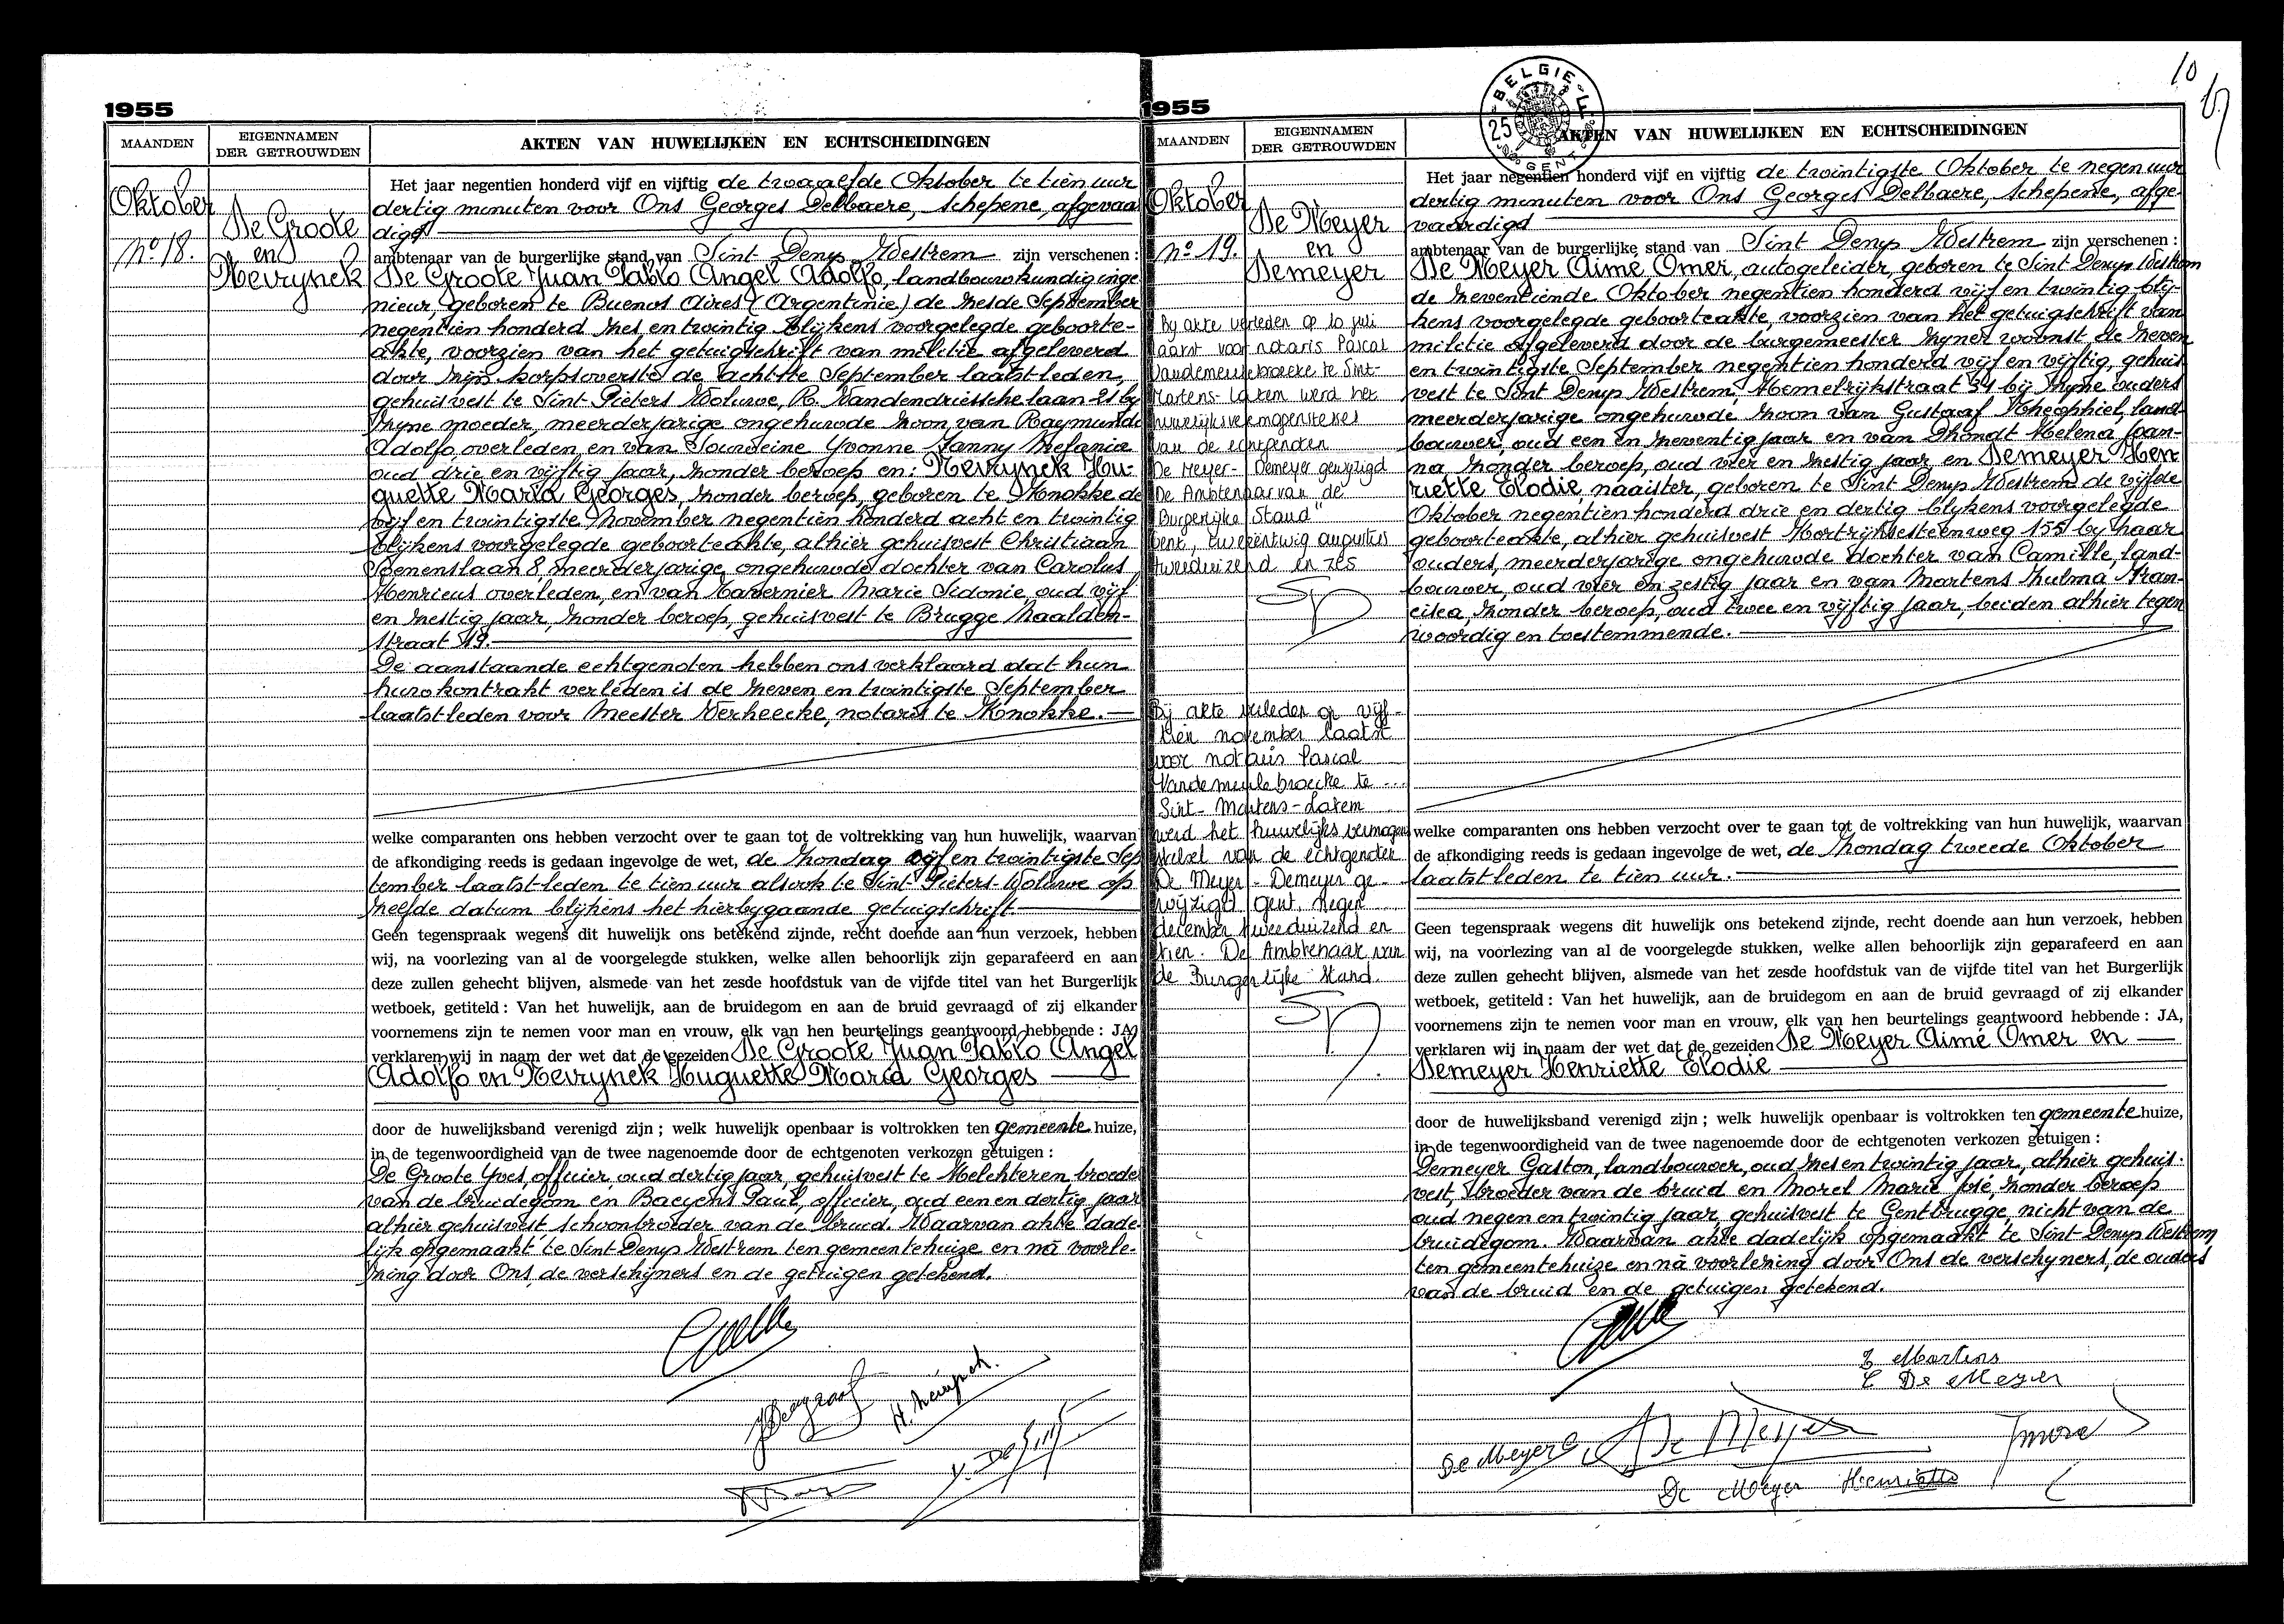 1955
MAANDEN
EIGENNAMEN
DER GETROUWDEN
AKTEN VAN HUWELIJKEN EN ECHTSCHEIDINGEN
Oktober
No 18.
De Groote
en
Nevrynck
Het jaar negentien honderd vijf en vijftig de twaalfde Oktober te tien uur
dertig minuten voor Ons Georges Delbaere, schepene, afgevaar
digd
ambtenaar van de burgerlijke stand van Sint Denys Westrem zijn verschenen :
De Groote Juan Pablo Angel Adolfo, landbouwkundig inge
nieur, geboren te Buenos Aires (Argentinie) de zesde September
negentien honderd zes en twintig blijkens voorgelegde geboorte-
akte, voorzien van het getuigschrift van militie afgeleverd
door zijn korpsoverste de achtste September laatstleden,
gehuisvest te Sint-Pieters Woluwe, R. Vandendriesschelaan 21 by
zyne moeder, meerderjarige ongehuwde zoon van Raymundo
Adolfo, overleden en van Yvonne Fanny Stefanie
oud drie en vijftig jaar, zonder beroep en: Nevrynck Hu-
guette Maria Georges, zonder beroep, geboren te Knokke de
vijf en twintigste November negentien honderd acht en twintig
blijkens voorgelegde geboorteakte, alhier gehuisvest Christiaan
Benenslaan 8, meerderjarige ongehuwde dochter van Carolus
Henricus overleden, en van Tavernier Marie Sidonie, oud vijf
en zestig jaar, zonder beroep, gehuisvest te Brugge Naalden-
straat 19.
De aanstaande echtgenoten hebben ons verklaard dat hun
huwkontrakt verleden is de zeven en twintigste September
laatstleden voor Meester Verheecke, notaris te Knokke.
welke comparanten ons hebben verzocht over te gaan tot de voltrekking van hun huwelijk, waarvan
de afkondiging reeds is gedaan ingevolge de wet, de zondag vijf en twintigste Sep
tember laatstleden te tien uur alsook te Sint Pieters-Woluwe op
zelfde datum blijkens het hierbygaande getuigschrift
Geen tegenspraak wegens dit huwelijk ons betekend zijnde, recht doende aan hun verzoek, hebben
wij, na voorlezing van al de voorgelegde stukken, welke allen behoorlijk zijn geparafeerd en aan
deze zullen gehecht blijven, alsmede van het zesde hoofdstuk van de vijfde titel van het Burgerlijk
wetboek, getiteld : Van het huwelijk, aan de bruidegom en aan de bruid gevraagd of zij elkander
voornemens zijn te nemen voor man en vrouw, elk van hen beurtelings geantwoord hebbende : JA,
verklaren wij in naam der wet dat de gezeiden De Groote Juan Pablo Angel
Adolfo en Nevrynck Huguette Maria Georges
door de huwelijksband verenigd zijn ; welk huwelijk openbaar is voltrokken ten gemeente huize,
in de tegenwoordigheid van de twee nagenoemde door de echtgenoten verkozen getuigen :
De Groote Yves, officier, oud dertig jaar, gehuisvest te Helchteren, broeder
van de bruidegom en Baeyens Paul, officier, oud een en dertig jaar
alhier gehuisvest, schoonbroeder van de bruid. Waarvan akte dade-
lijk opgemaakt te Sint Denys Westrem ten gemeentehuize en nà voorle-
zing door Ons, de verschijners en de getuigen getekend.
1955
10
BELGIE
25
GENT
MAANDEN
EIGENNAMEN
DER GETROUWDEN
AKTEN VAN HUWELIJKEN EN ECHTSCHEIDINGEN
Oktober
no 19.
De Meyer
en
Demeyer
By akte verleden op 10 juli
laatst voor notaris Pascal
Vandemeulebroecke te Sint-
Martens-Latem werd het
huwelijksvermogenstelsel
van de echtgenoten
De Meyer - Demeyer gewijzigd
De Ambtenaar van de
Burgerlijke Stand"
Gent, tweeëntwintig augustus
tweeduizend en zes
Bij akte verleden op vijf-
tien november laatst
voor notaris Pascal
Vandemeulebroecke te
Sint-Martens-Latem
werd het huwelijksvermogen
stelsel van de echtgenoten
De Meyer - Demeyer ge-
wijzigd Gent, negen
december tweeduizend en
tien. De Ambtenaar van
de Burgerlijke Stand.
Het jaar negentien honderd vijf en vijftig de twintigste Oktober te negen uur
dertig minuten voor Ons Georges Delbaere, schepene, afge-
vaardigd
ambtenaar van de burgerlijke stand van Sint Denys Westrem zijn verschenen :
De Meyer Aimé Omer, autogeleider, geboren te Sint Denys Westrem
de zeventiende Oktober negentien honderd vijf en twintig blij-
kens voorgelegde geboorteakte, voorzien van het getuigschrift van
militie afgeleverd door de burgemeester zyner woonst de zeven
en twintigste September negentien honderd vijf en vijftig, gehuis
vest te Sint Denys Westrem, Hemelrijkstraat 31 bij zyne ouders
meerderjarige ongehuwde zoon van Gustaaf Theophiel, land-
bouwer, oud een en zeventig jaar en van Dhondt Helena Joan-
na, zonder beroep, oud vier en zestig jaar en Demeyer Hen
riette Elodie, naaister, geboren te Sint Denys Westrem de vijfde
Oktober negentien honderd drie en dertig blykens voorgelegde
geboorteakte, alhier gehuisvest Kortrijksesteenweg 155 by haar
ouders, meerderjarige ongehuwde dochter van Camille, land-
bouwer, oud vier en zestig jaar en van Martens Zulma Fran-
cisca, zonder beroep, oud twee en vijftig jaar, beiden alhier tegen
woordig en toestemmende.
welke comparanten ons hebben verzocht over te gaan tot de voltrekking van hun huwelijk, waarvan
de afkondiging reeds is gedaan ingevolge de wet, de zondag tweede Oktober
laatstleden te tien uur.
Geen tegenspraak wegens dit huwelijk ons betekend zijnde, recht doende aan hun verzoek, hebben
wij, na voorlezing van al de voorgelegde stukken, welke allen behoorlijk zijn geparafeerd en aan
deze zullen gehecht blijven, alsmede van het zesde hoofdstuk van de vijfde titel van het Burgerlijk
wetboek, getiteld : Van het huwelijk, aan de bruidegom en aan de bruid gevraagd of zij elkander
voornemens zijn te nemen voor man en vrouw, elk van hen beurtelings geantwoord hebbende : JA,
verklaren wij in naam der wet dat de gezeiden De Meyer Aimé Omer en
Demeyer Henriette Elodie
door de huwelijksband verenigd zijn ; welk huwelijk openbaar is voltrokken ten gemeente huize,
in de tegenwoordigheid van de twee nagenoemde door de echtgenoten verkozen getuigen :
Demeyer Gaston, landbouwer, oud zes en twintig jaar, alhier gehuis-
vest, broeder van de bruid en Morel Marie José, zonder beroep
oud negen en twintig jaar, gehuisvest te Gentbrugge, nicht van de
bruidegom. Waarvan akte dadelijk opgemaakt te Sint Denys Westrem
ten gemeentehuize en nà voorlezing door Ons de verschyners, de ouders
van de bruid en de getuigen getekend.
Z Martens
C De Meyer
De Meyer G
De Meyer
De Meyer Henriette